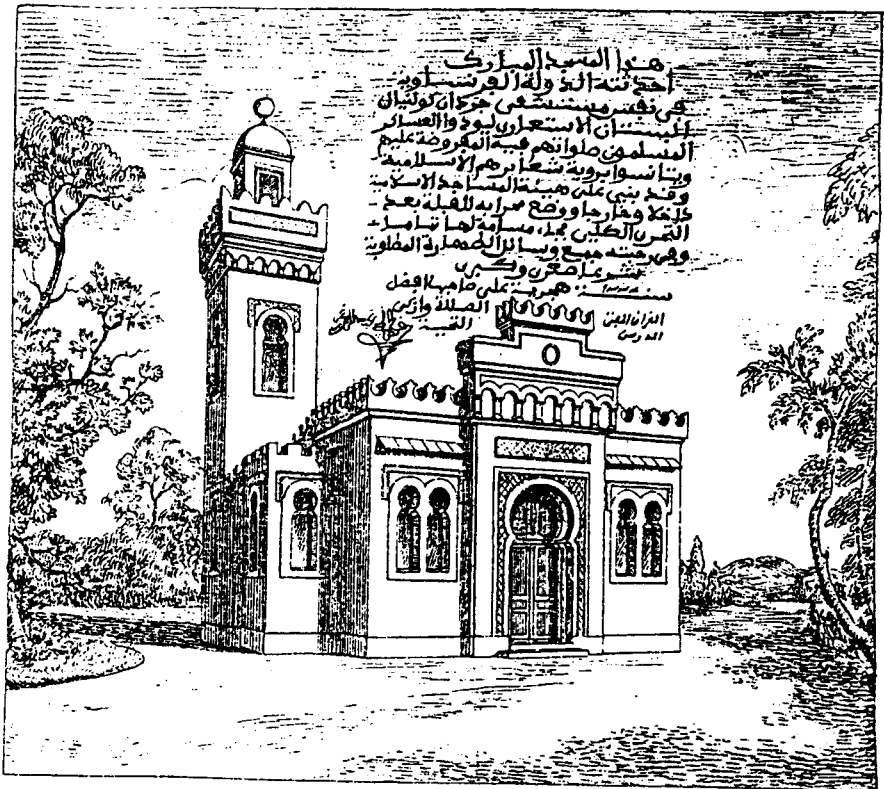 هذا المسجد المبارك
احدثته الدولة الفرنساوية
في نفس مستشفى جردان كولنيال
البستان الاستعماري ليودوا العساكر
المسلمون صلواتهم فيه المفروضة عليهم
ويتانسوا بروية شعايرهم الاسلامية
وقد بني على هيئة المساجد الاسلامية
داخلا وخارجا ووضع محرابه للقبلة بعد
التحري الكلي مسامة لها تماما
وفي رحبته جميع وسائل الطهارة المطلوبة
شرعا صغرى وكبرى
سنة هجرية على صاحبها افضل
الصلاة وازكى
التحية